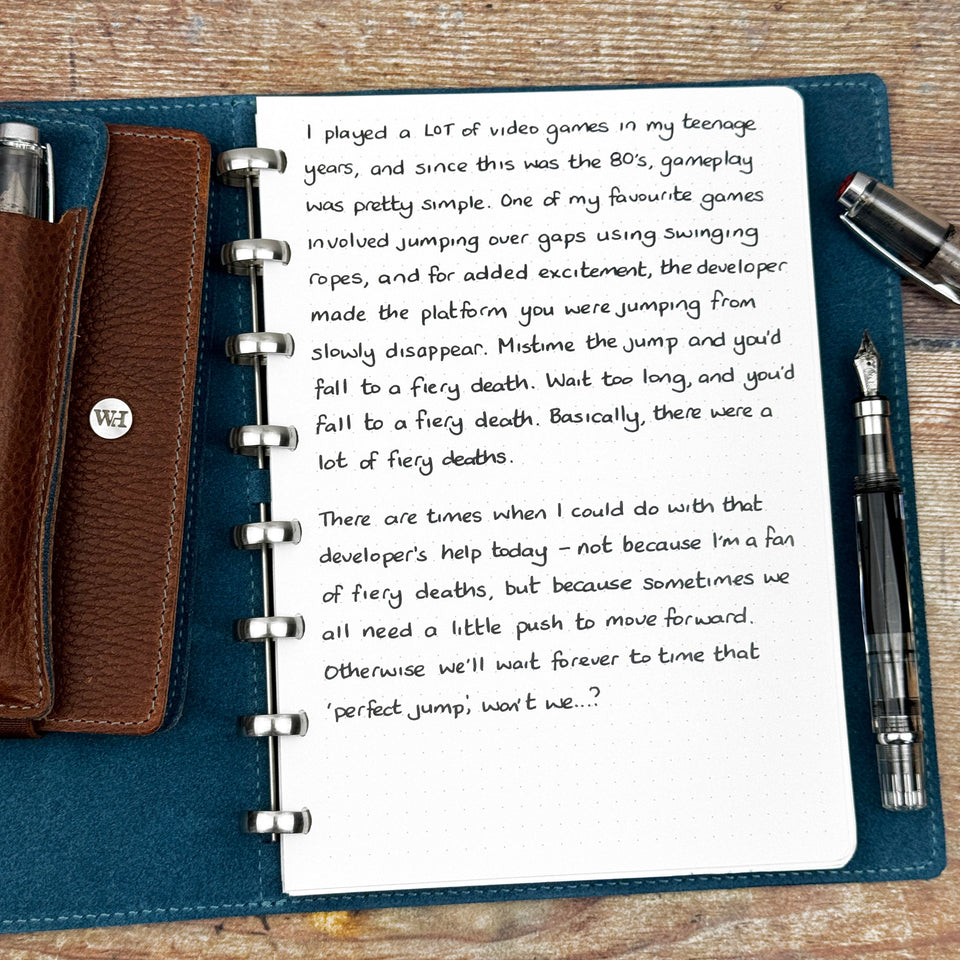 WH
I played a LOT of video games in my teenage
years, and since this was the 80's, gameplay
was pretty simple. One of my favourite games
involved jumping over gaps using swinging
ropes, and for added excitement, the developer
made the platform you were jumping from
slowly disappear. Mistime the jump and you'd
fall to a fiery death. Wait too long, and you'd
fall to a fiery death. Basically, there were a
lot of fiery deaths.
There are times when I could do with that
developer's help today – not because I'm a fan
of fiery deaths, but because sometimes we
all need a little push to move forward.
Otherwise we'll wait forever to time that
'perfect jump', won't we...?